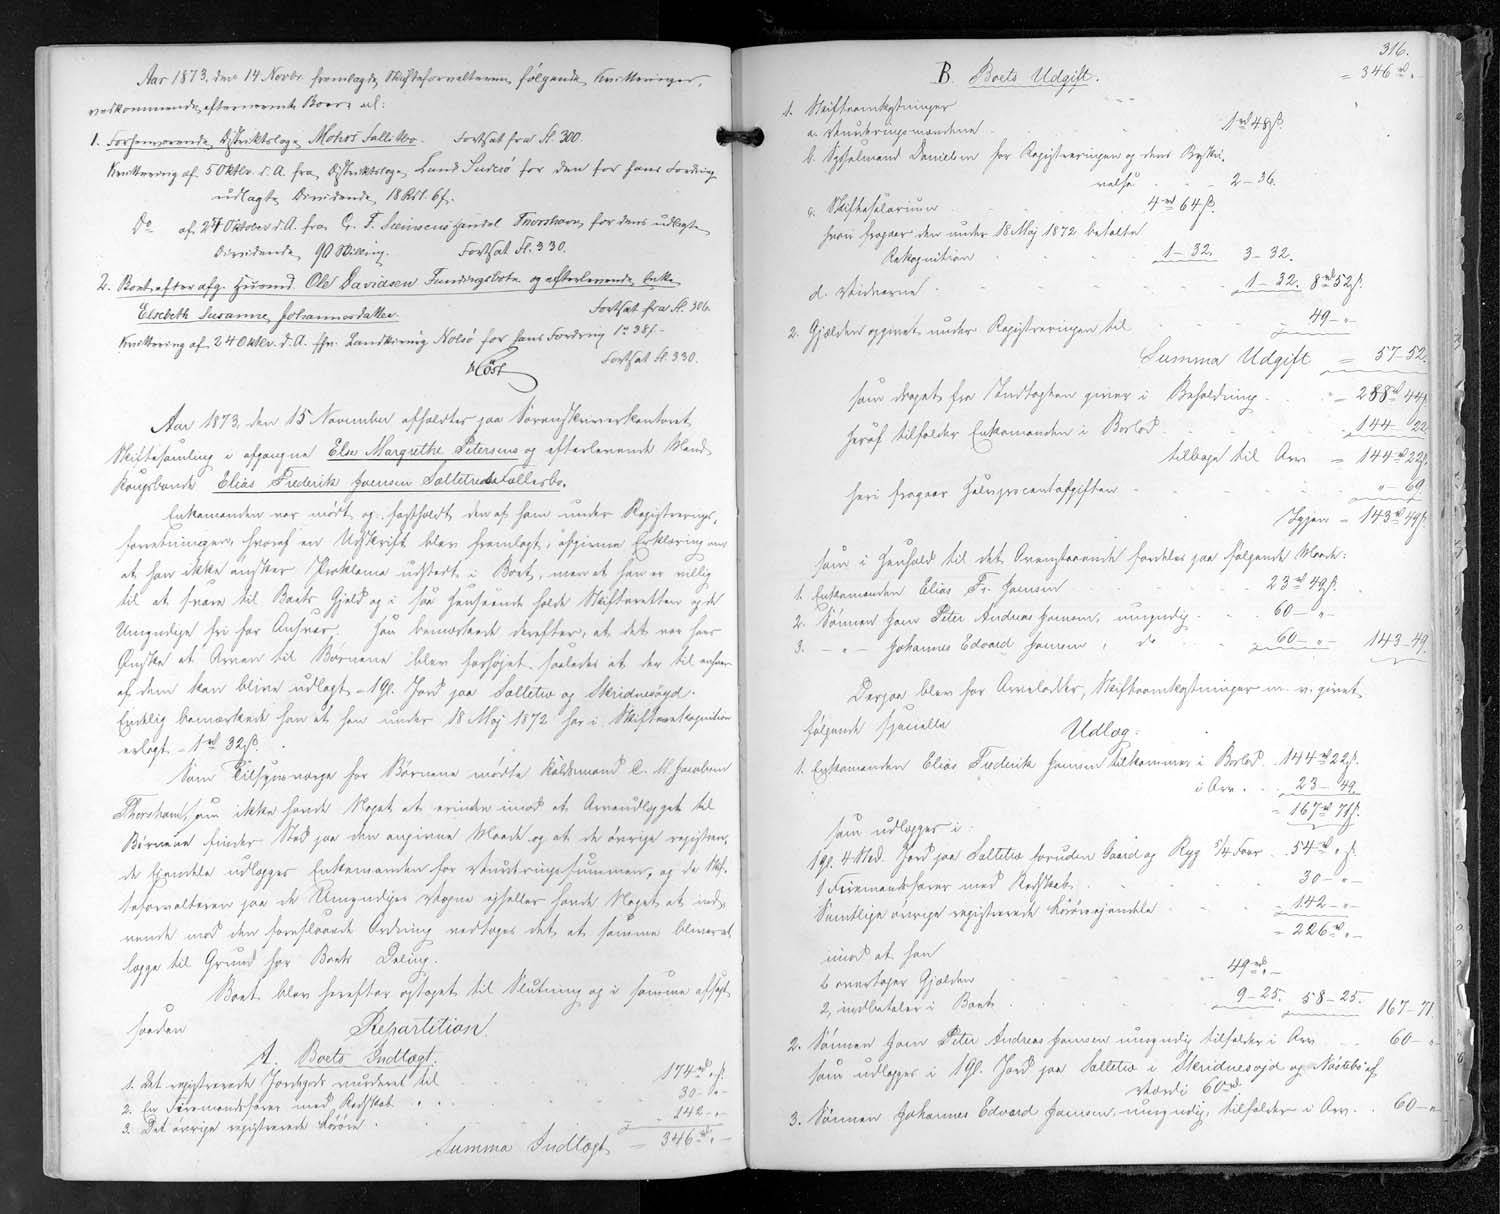 Aar 1873, den 14 Novbr. fremlagde Skifteforvalteren følgende Kvitteringer,
vedkommende efternævnte Boer:
1. Forhenværende Distriktslæge Mohrs Fallitbo. Fortsat fra fl. 300.
Kvittering af 5 Oktbr. d. A. fra Distriktslæge Lund Suderø for den for hans Fordring
udlagte Dividende 18 Rd. 6 f.
Do af 24 Oktober d. A. fra C. F. Siemsens Handel Thorshavn for dens udlagte
Dividende 90 Skilling. Fortsat fl. 330.
2. Boet efter afg. Huusmd. Ole Davidsen Fundingsbotn og efterlevende Enke
Elsebeth Susanne Johannesdatter. Fortsat fra fl. 306.
Kvittering af 24 Oktbr. d. A. fra Landkirurg Nolsø for hans Fordring 1 rd 38 f.
Fortsat fl. 330.
Aar 1873, den 15 November afholdtes paa Sorenskriverkontoret
Skiftesamling i afgangne Else Margrethe Petersens og efterlevende Mand
Kongsbonde Elias Frederik Joensen Sætterne Fællesbo.
Enkemanden var mødt og fastholdt den af ham under Registrerings-
forretningen, hvoraf en Udskrift blev fremlagt, afgivne Erklæring om
at han ikke ønsker Proklama udstedt i Boet, men at han er villig
til at svare til Boets Gjeld og i saa Henseende holde Skifteretten og de
Umyndige fri for Ansvar. Han bemærkede derefter, at det var hans
Ønske at Arven til Børnene blev forhøjet saaledes at der til enhver
af dem kan blive udlagt 1 Gl. Jord paa Sætterne og Skridnesøjd.
Endelig bemærkede han at han under 18 Maj 1872 har i Skifterekognition
erlagt 1 rd 32 ß.
Som Tilsynsværge for Børnene mødte Raadsmand C. M. Jacobsen
Thorshavn, som ikke havde Noget at erindre imod at Arveudlægget til
Børnene finder Sted paa den angivne Maade og at de øvrige registrere-
de Ejendele udlægges Enkemanden for Vurderingssummen, og da Skif-
teforvalteren paa de Umyndiges Vegne ejheller havde Noget at ind-
vende mod den foreslaaede Ordning vedtoges det at samme bliver at
lægge til Grund for Boets Deling.
Boet blev herefter optaget til Slutning og i samme afsagt
saadan
Repartition.
A. Boets Indtægt.
1. Det registrerede Jordegods vurderet til 174 rd " ß
2. En Firemandsfarer med Redskab 30 - " -
3. Det øvrige registrerede Løsøre 142 - " -
Summa Indtægt = 346 rd " -
316.
B. Boets Udgift. = 346 rd "
1. Skifteomkostninger
a. Vurderingsmændene 1 rd 48 ß.
b. Sysselmand Danielsen for Registreringen og dens Beskri-
velse 2 - 36.
c. Skiftesalarium 4 rd 64 ß.
hvori fragaar den under 18 Maj 1872 betalte
Rekognition 1 - 32. 3 - 32.
d. Vidnerne 1 - 32. 8 rd 52 ß.
2. Gjælden opgivet under Registreringen til 49 - "
Summa Udgift = 57 - 52.
som draget fra Indtægten giver i Beholdning = 288 rd 44 ß
Heraf tilfalder Enkemanden i Boslod 144 - 22
tilbage til Arv = 144 rd 22 ß.
heri fragaar Halvprocentafgiften " - 69
Igjen = 143 rd 49 ß.
som i Henhold til det Ovenstaaende fordeles paa følgende Maade:
1. Enkemanden Elias Fr. Joensen 23 rd 49 ß.
2. Sønnen Joen Peter Andreas Joensen, umyndig 60 - " -
3. - " - Johannes Edvard Joensen, do 60 - " - 143 - 49.
Derpaa blev for Arvelodder, Skifteomkostninger m. v. givet
følgende specielle
Udlæg:
1. Enkemanden Elias Frederik Joensen tilkommer i Boslod 144 rd 22 ß.
i Arv 23 - 49
= 167 rd 71 ß.
som udlægges i:
1 Gl. 4 Skd. Jord paa Sætterne foruden Gaard og Byg 5/4 Faar 54 rd " ß.
1 Firemandsfarer med Redskab 30 - " -
Samtlige øvrige registrerede Løsøreejendele 142 - " -
= 226 rd " -
imod at han
1, overtager Gjælden 49 rd " -
2, indbetaler i Boet 9 - 25. 58 - 25. 167 - 71
2. Sønnen Joen Peter Andreas Joensen umyndig tilfalder i Arv 60 - "
som udlægges i 1 Gl. Jord paa Sætterne i Skridnesøjd og Nøstebø af
Værdi 60 rd
3. Sønnen Johannes Edvard Joensen, umyndig, tilfalder i Arv 60 - "